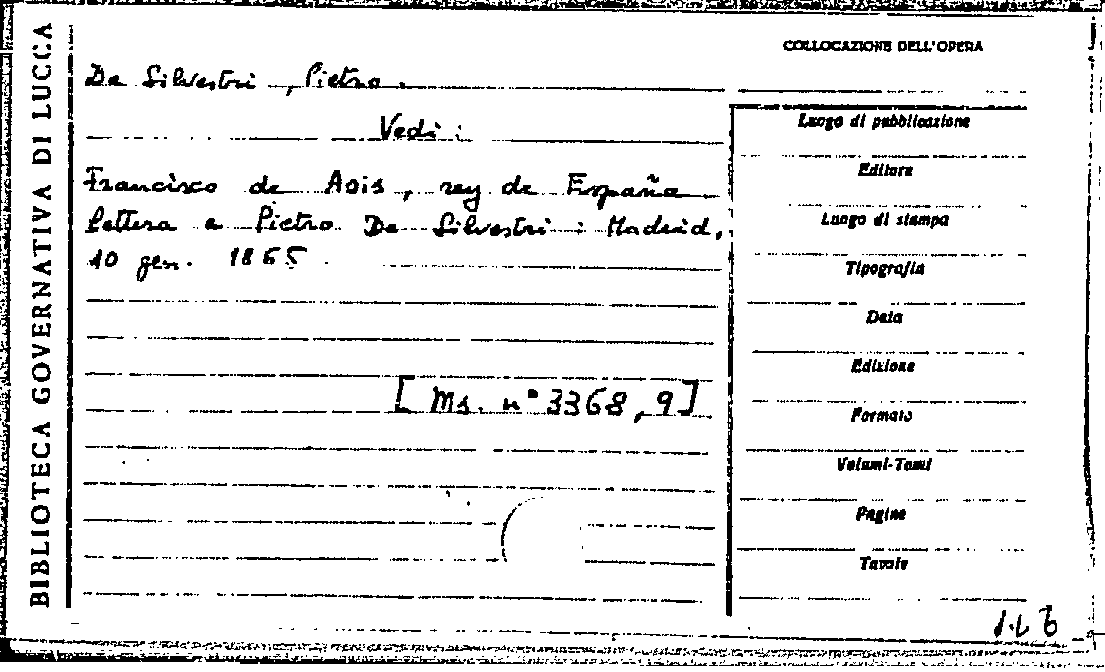 BIBLIOTECA GOVERNATIVA DI LUCCA
COLLOCAZIONE DELL'OPERA
De Silvestri, Pietro.
Vedi:
Francisco de Asis, rey de España
Lettera a Pietro De Silvestri : Madrid,
10 gen. 1865.
[Ms. n° 3368, 9]
Luogo di pubblicazione
Editore
Luogo di stampa
Tipografia
Data
Edizione
Formato
Volumi-Tomi
Pagine
Tavole